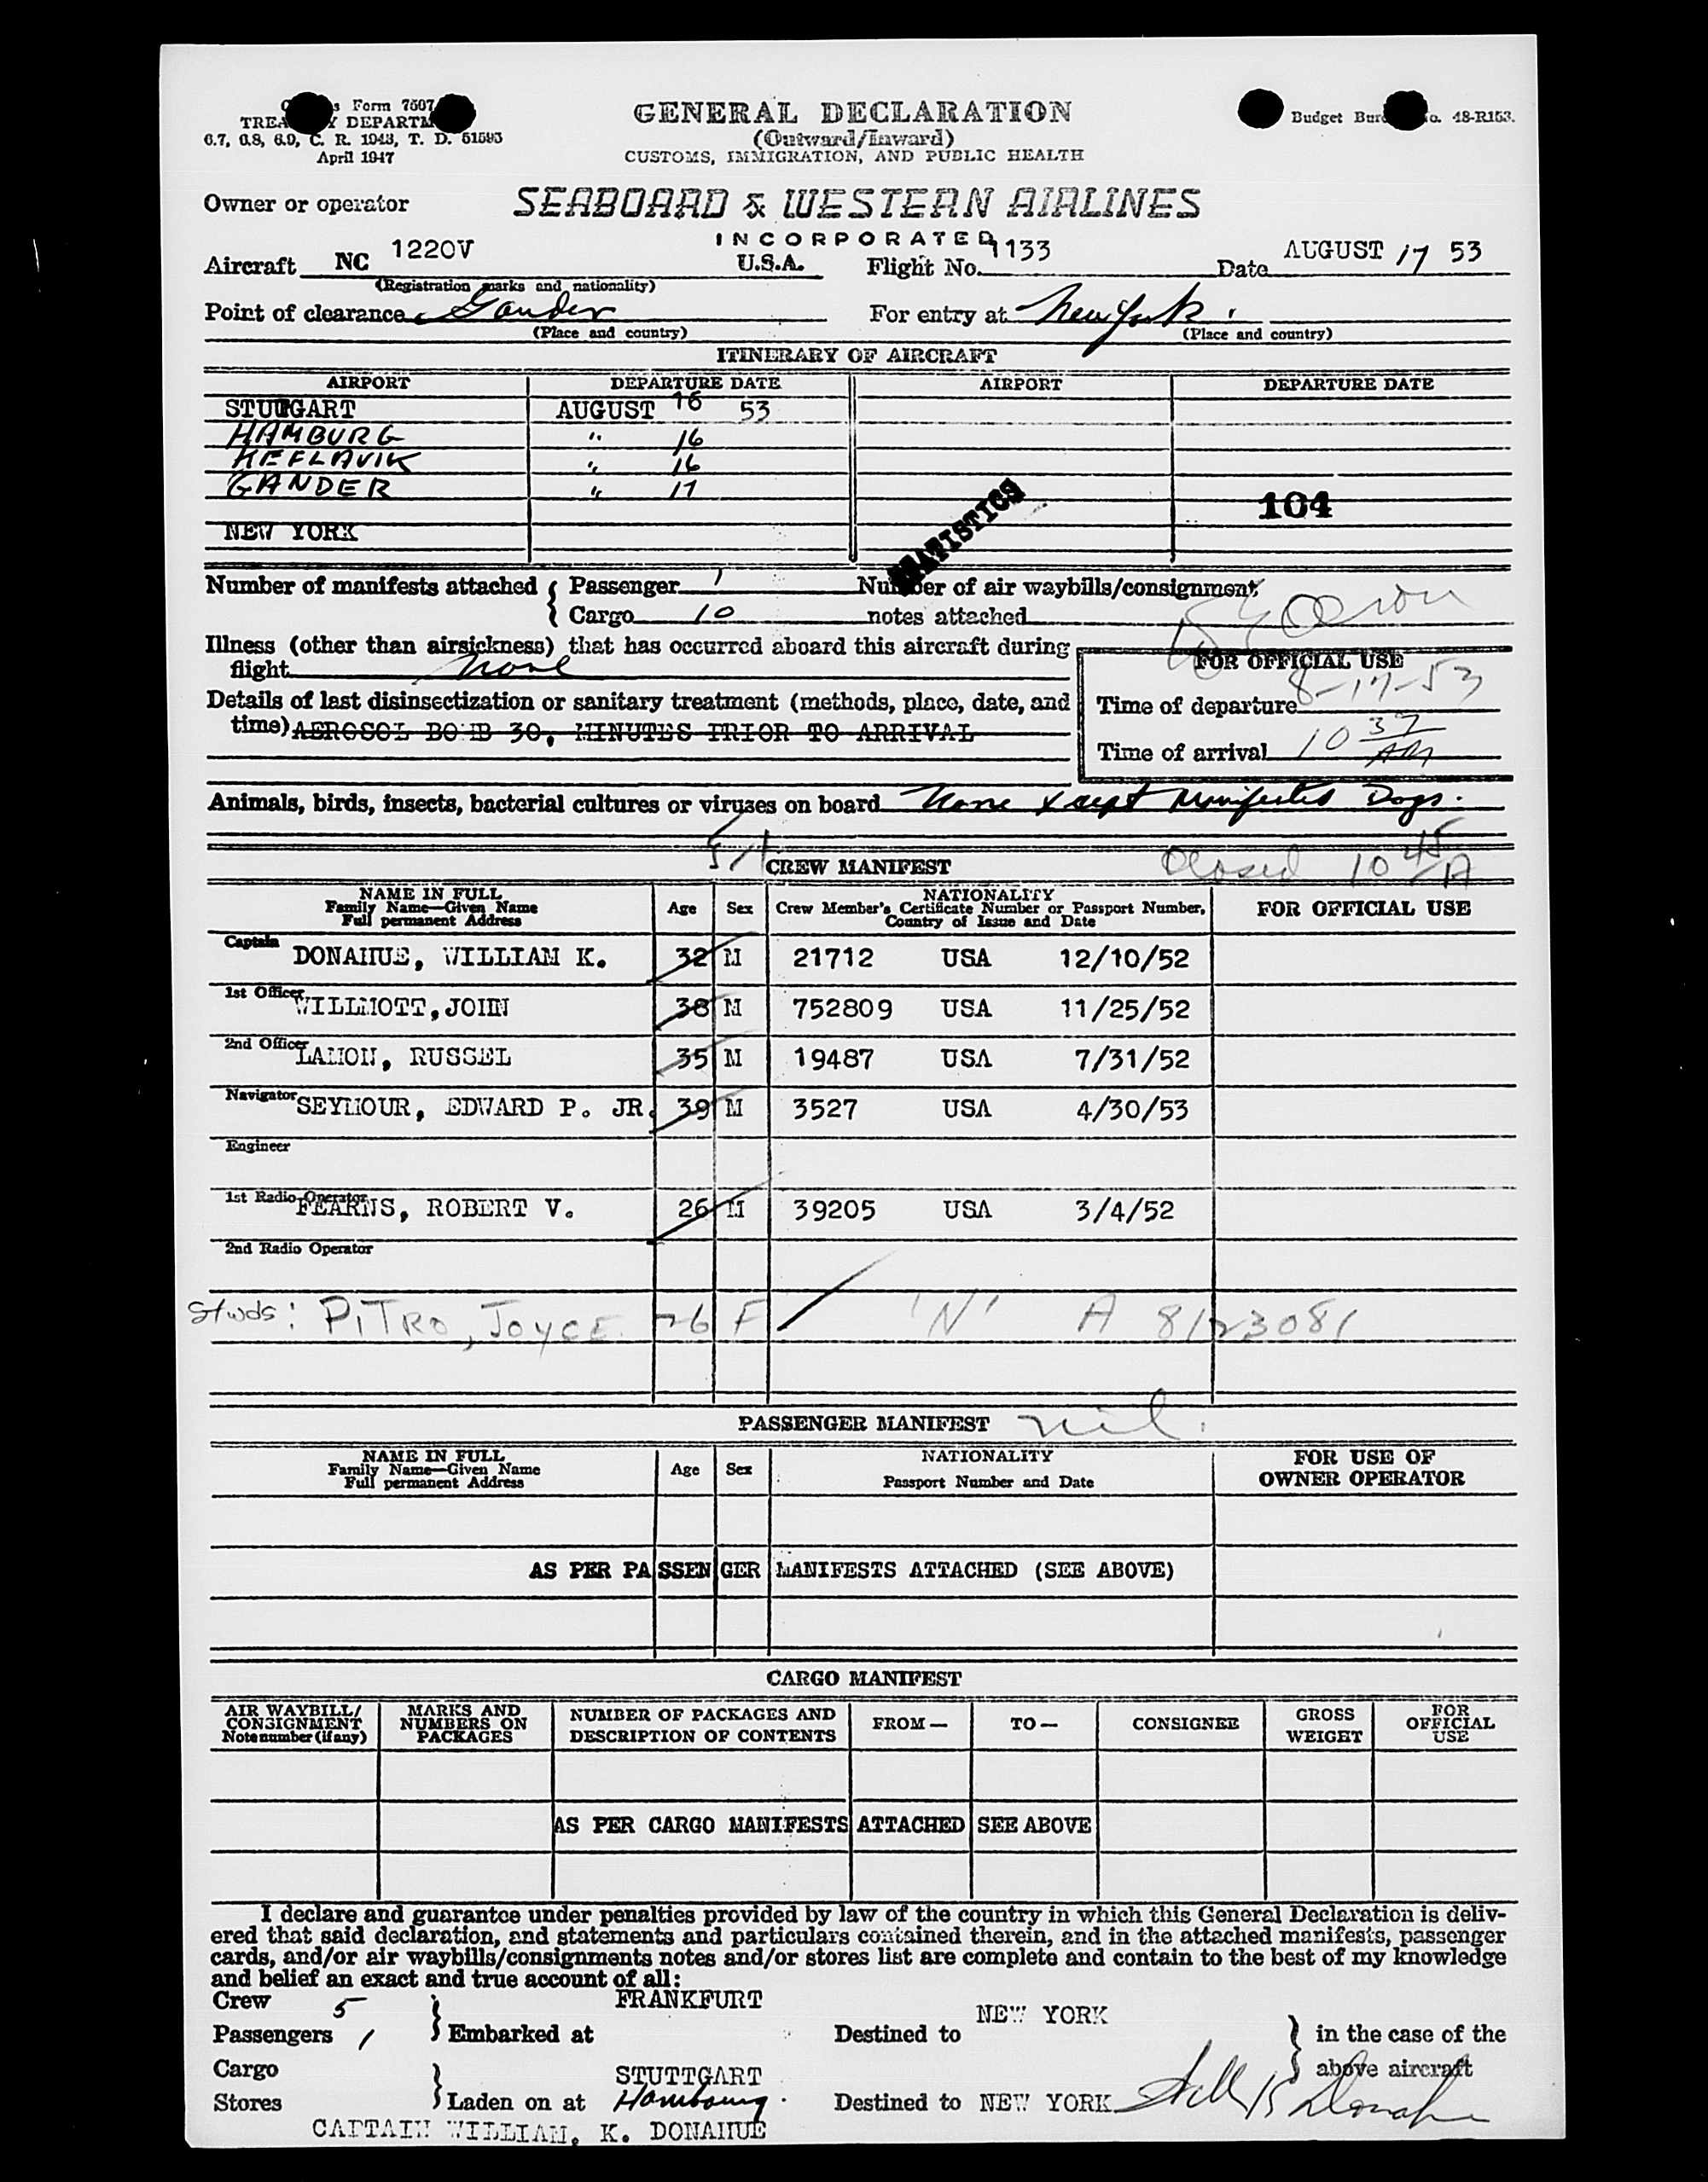 Form 7507
TREA DEPARTM
6.7, 6.8, 6.9, C. R. 1943, T. D. 51595
April 1947
GENERAL DECLARATION
(Outward/Inward)
CUSTOMS, IMMIGRATION, AND PUBLIC HEALTH
Budget Bure o. 48-R153.
Owner or operator SEABOARD & WESTERN AIRLINES
INCORPORATED
Aircraft NC 1220V U.S.A. Flight No. 1133 Date AUGUST 17 53
(Registration marks and nationality)
Point of clearance Gander For entry at New York
(Place and country) (Place and country)
ITINERARY OF AIRCRAFT
AIRPORT DEPARTURE DATE AIRPORT DEPARTURE DATE
STUTTGART AUGUST 16 53
HAMBURG " 16
KEFLAVIK " 16
GANDER " 17
104
NEW YORK
STATISTICS
Number of manifests attached { Passenger 1 Number of air waybills/consignment
Cargo 10 notes attached
Illness (other than airsickness) that has occurred aboard this aircraft during
flight None
FOR OFFICIAL USE
8-17-53
Details of last disinsectization or sanitary treatment (methods, place, date, and Time of departure
time) AEROSOL BOMB 30, MINUTES PRIOR TO ARRIVAL
Time of arrival 10 37 AM
Animals, birds, insects, bacterial cultures or viruses on board None Xcept Manifested Dogs.
5/1
CREW MANIFEST Closed 10 45 A
NAME IN FULL
Family Name—Given Name
Full permanent Address
Age Sex
NATIONALITY
Crew Member's Certificate Number or Passport Number,
Country of Issue and Date
FOR OFFICIAL USE
Captain DONAHUE, WILLIAM K. 32 M 21712 USA 12/10/52
1st Officer WILLMOTT,JOHN 38 M 752809 USA 11/25/52
2nd Officer LAMON, RUSSEL 35 M 19487 USA 7/31/52
Navigator SEYMOUR, EDWARD P. JR. 39 M 3527 USA 4/30/53
Engineer
1st Radio Operator FEARNS, ROBERT V. 26 M 39205 USA 3/4/52
2nd Radio Operator
Stwds: PITRO, JOYCE 26 F 'N' A 8123081
PASSENGER MANIFEST nil.
NAME IN FULL
Family Name—Given Name
Full permanent Address
Age Sex
NATIONALITY
Passport Number and Date
FOR USE OF
OWNER OPERATOR
AS PER PASSENGER MANIFESTS ATTACHED (SEE ABOVE)
CARGO MANIFEST
AIR WAYBILL/
CONSIGNMENT
Note number (if any)
MARKS AND
NUMBERS ON
PACKAGES
NUMBER OF PACKAGES AND
DESCRIPTION OF CONTENTS
FROM—
TO—
CONSIGNEE
GROSS
WEIGHT
FOR
OFFICIAL
USE
AS PER CARGO MANIFESTS ATTACHED SEE ABOVE
I declare and guarantee under penalties provided by law of the country in which this General Declaration is deliv-
ered that said declaration, and statements and particulars contained therein, and in the attached manifests, passenger
cards, and/or air waybills/consignments notes and/or stores list are complete and contain to the best of my knowledge
and belief an exact and true account of all:
Crew 5 FRANKFURT NEW YORK
Passengers 1 } Embarked at Destined to } in the case of the
Cargo STUTTGART above aircraft
Stores } Laden on at Hambourg. Destined to NEW YORK
CAPTAIN WILLIAM. K. DONAHUE